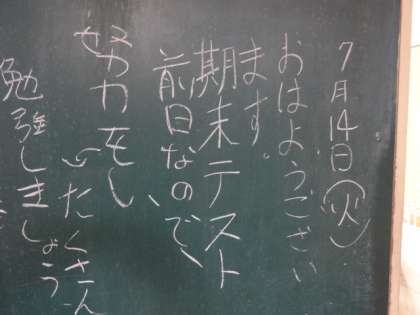 7月14日(火)
おはようござい
ます。
期末テスト
前日なので、
努力をし、
たくさん
勉強しましょう